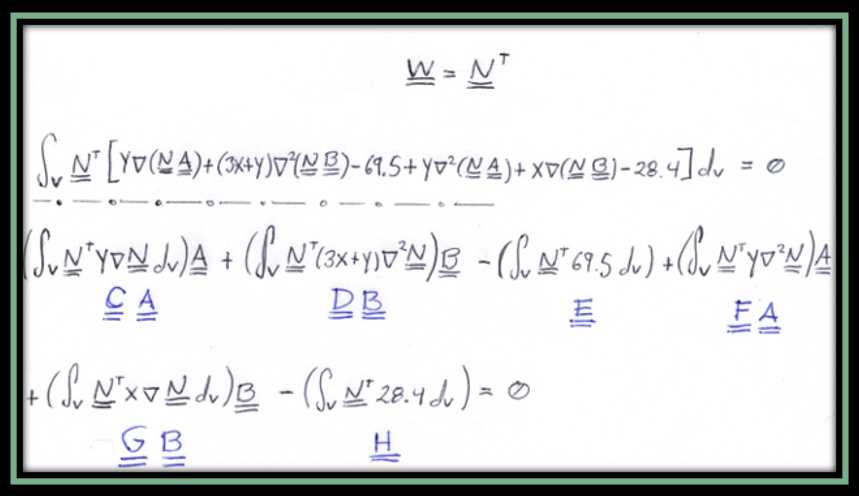 W = Nᵀ
∫ᵥ Nᵀ [Y∇(N A)+(3x+y)∇²(N B)-69.5+y∇²(N A)+x∇(N B)-28.4] dv = 0
(∫ᵥ Nᵀy∇N dv)A + (∫ᵥ Nᵀ(3x+y)∇²N)B - (∫ᵥ Nᵀ 69.5 dv) + (∫ᵥ Nᵀy∇²N)A
C A D B E F A
+ (∫ᵥ Nᵀx∇N dv)B - (∫ᵥ Nᵀ 28.4 dv) = 0
G B H